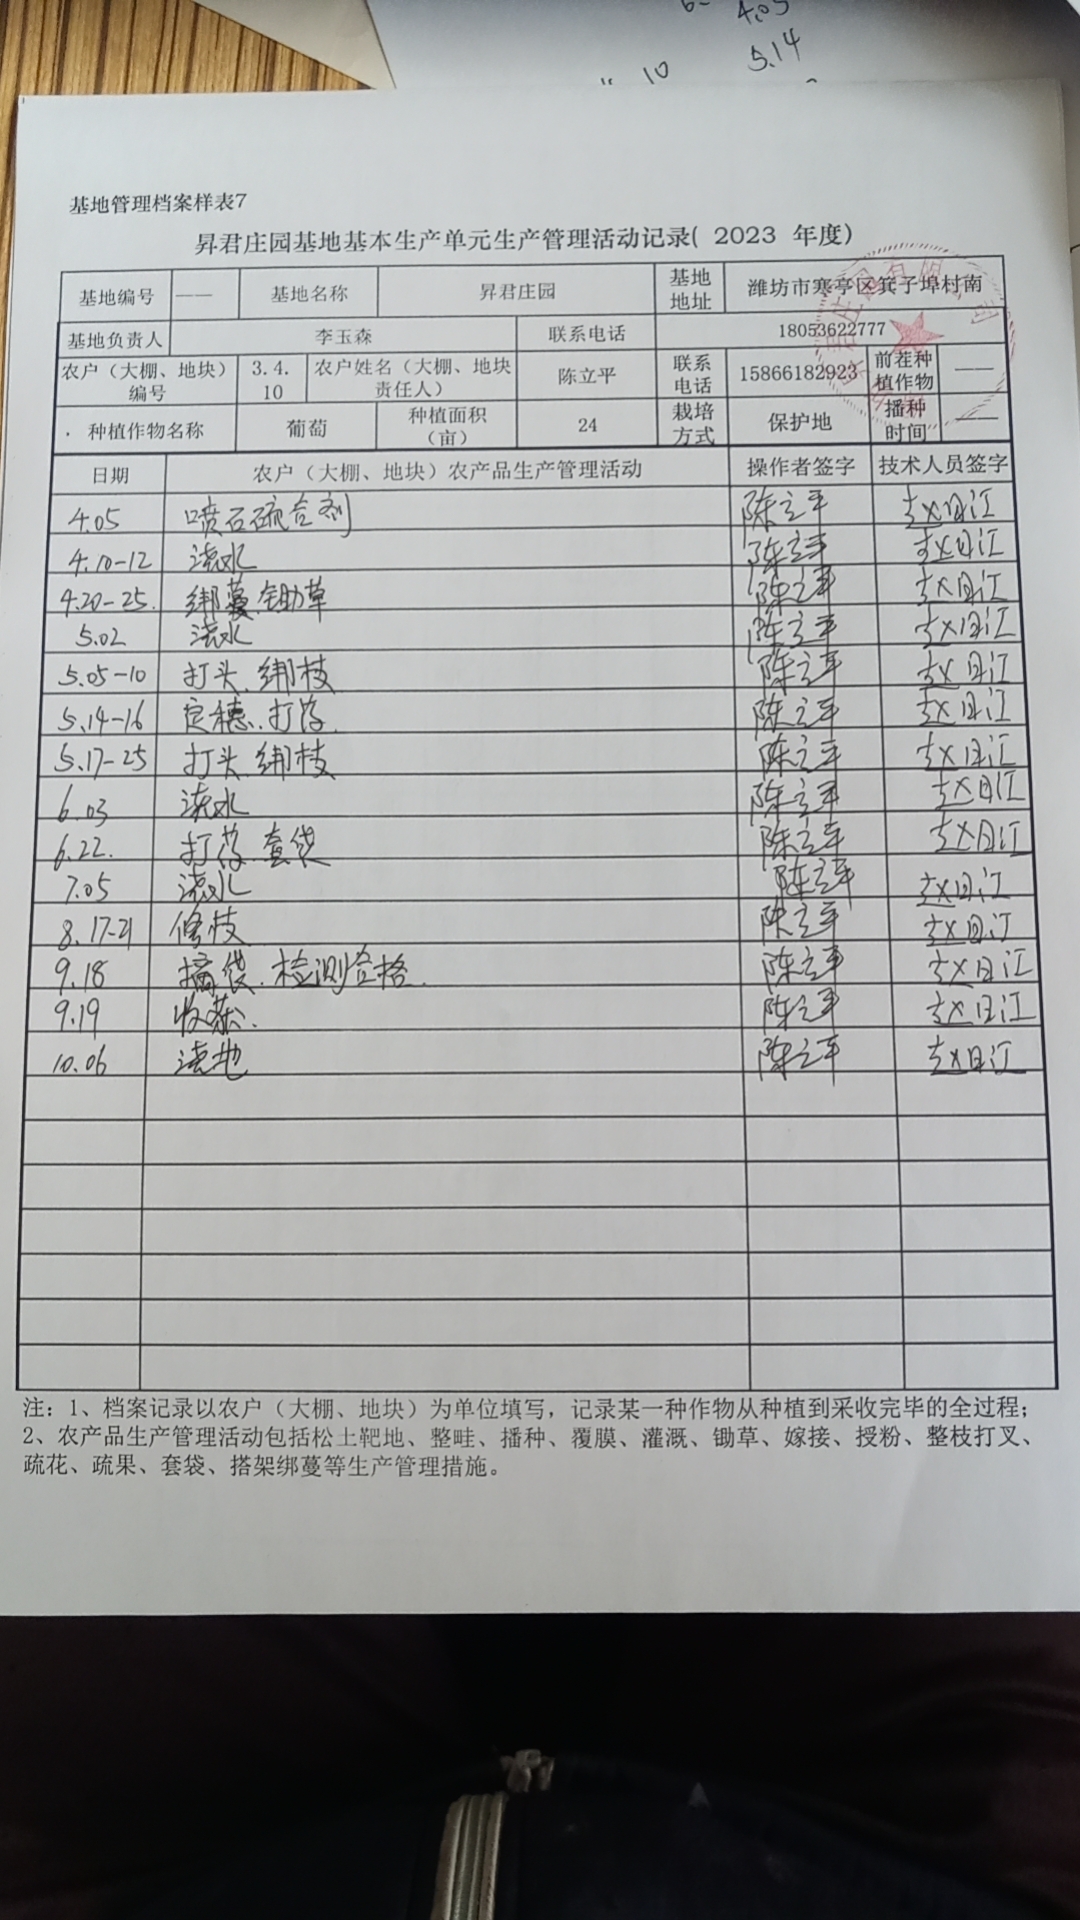 4.05
10 5.14
基地管理档案样表7
昇君庄园基地基本生产单元生产管理活动记录( 2023 年度)
基地编号 —— 基地名称 昇君庄园 基地地址 潍坊市寒亭区箕子埠村南
基地负责人 李玉森 联系电话 18053622777
农户（大棚、地块）编号 3.4.10 农户姓名（大棚、地块责任人） 陈立平 联系电话 15866182923 前茬种植作物 ——
种植作物名称 葡萄 种植面积（亩） 24 栽培方式 保护地 播种时间 ——
日期 农户（大棚、地块）农产品生产管理活动 操作者签字 技术人员签字
4.05 喷石硫合剂 陈立平 赵日江
4.10-12 浇水 陈立平 赵日江
4.20-25. 绑蔓、锄草 陈立平 赵日江
5.02 浇水 陈立平 赵日江
5.05-10 打头、绑枝 陈立平 赵日江
5.14-16 定穗、打药. 陈立平 赵日江
5.17-25 打头、绑枝 陈立平 赵日江
6.03 浇水 陈立平 赵日江
6.22. 打药、套袋 陈立平 赵日江
7.05 浇水 陈立平 赵日江
8.17-21 修枝 陈立平 赵日江
9.18 摘袋、检测合格. 陈立平 赵日江
9.19 收获. 陈立平 赵日江
10.06 浇地 陈立平 赵日江
注：1、档案记录以农户（大棚、地块）为单位填写，记录某一种作物从种植到采收完毕的全过程；
2、农产品生产管理活动包括松土靶地、整畦、播种、覆膜、灌溉、锄草、嫁接、授粉、整枝打叉、
疏花、疏果、套袋、搭架绑蔓等生产管理措施。